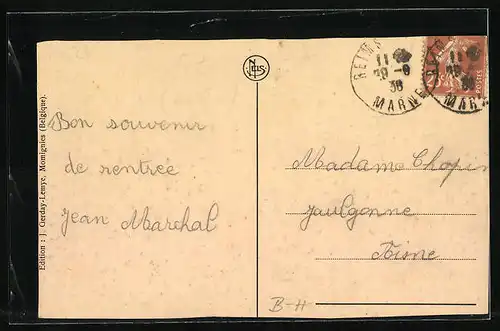 Edition : J. Gerday-Lemye, Momignies (Belgique).
Bon souvenir
de rentrée
Jean Marchal
REIMS
11
30-6
36
MARNE
REIMS
11
36
MARNE
POSTES
Madame Chopin
Jaulgonne
Aisne
B-H